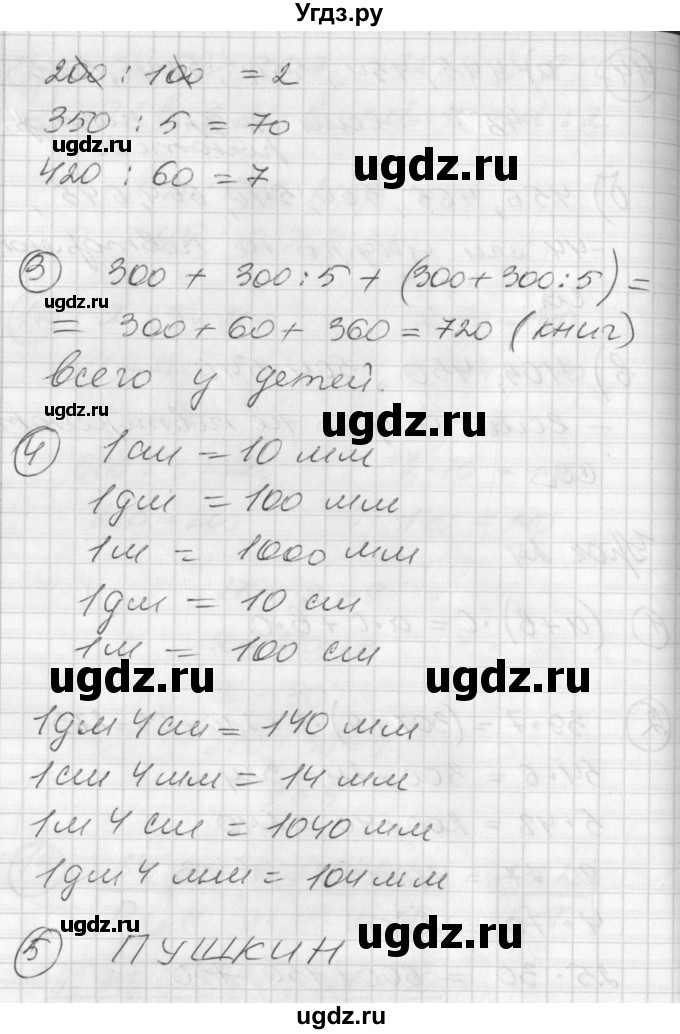 Угдз.ру
200 : 100 = 2
350 : 5 = 70
ugdz.ru
ugdz.ru
420 : 60 = 7
③ 300 + 300:5 + (300+300:5) =
ugdz.ru
= 300+60+ 360 = 720 (книг)
всего у детей.
ugdz.ru
ugdz.ru
④ 1см = 10 мм
1дм = 100 мм
1м = 1000 мм
1дм = 10 см
1м = 100 см
ugdz.ru
ugdz.ru
1дм 4см = 140 мм
1см 4мм = 14 мм
1м 4 см = 1040 мм
1дм 4 мм = 104мм
ugdz.ru
ugdz.ru
⑤ ПУШКИН
ugdz.ru